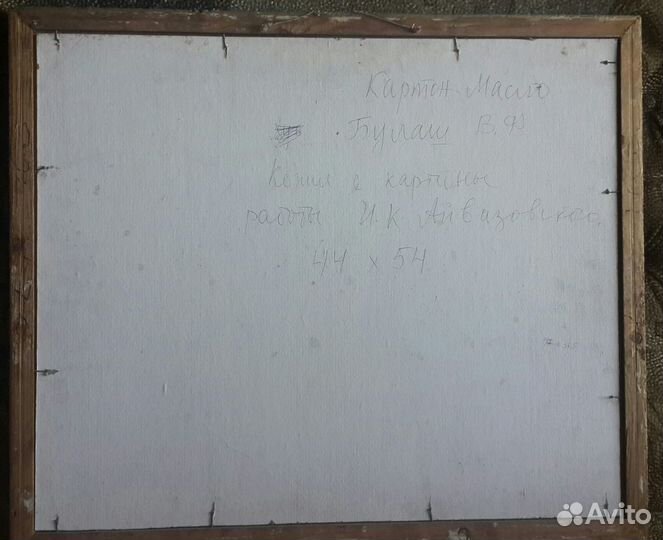 Картон Масло
Булаш В.Ф
Копия с картины
работы И.К. Айвазовского.
44 x 54
Avito